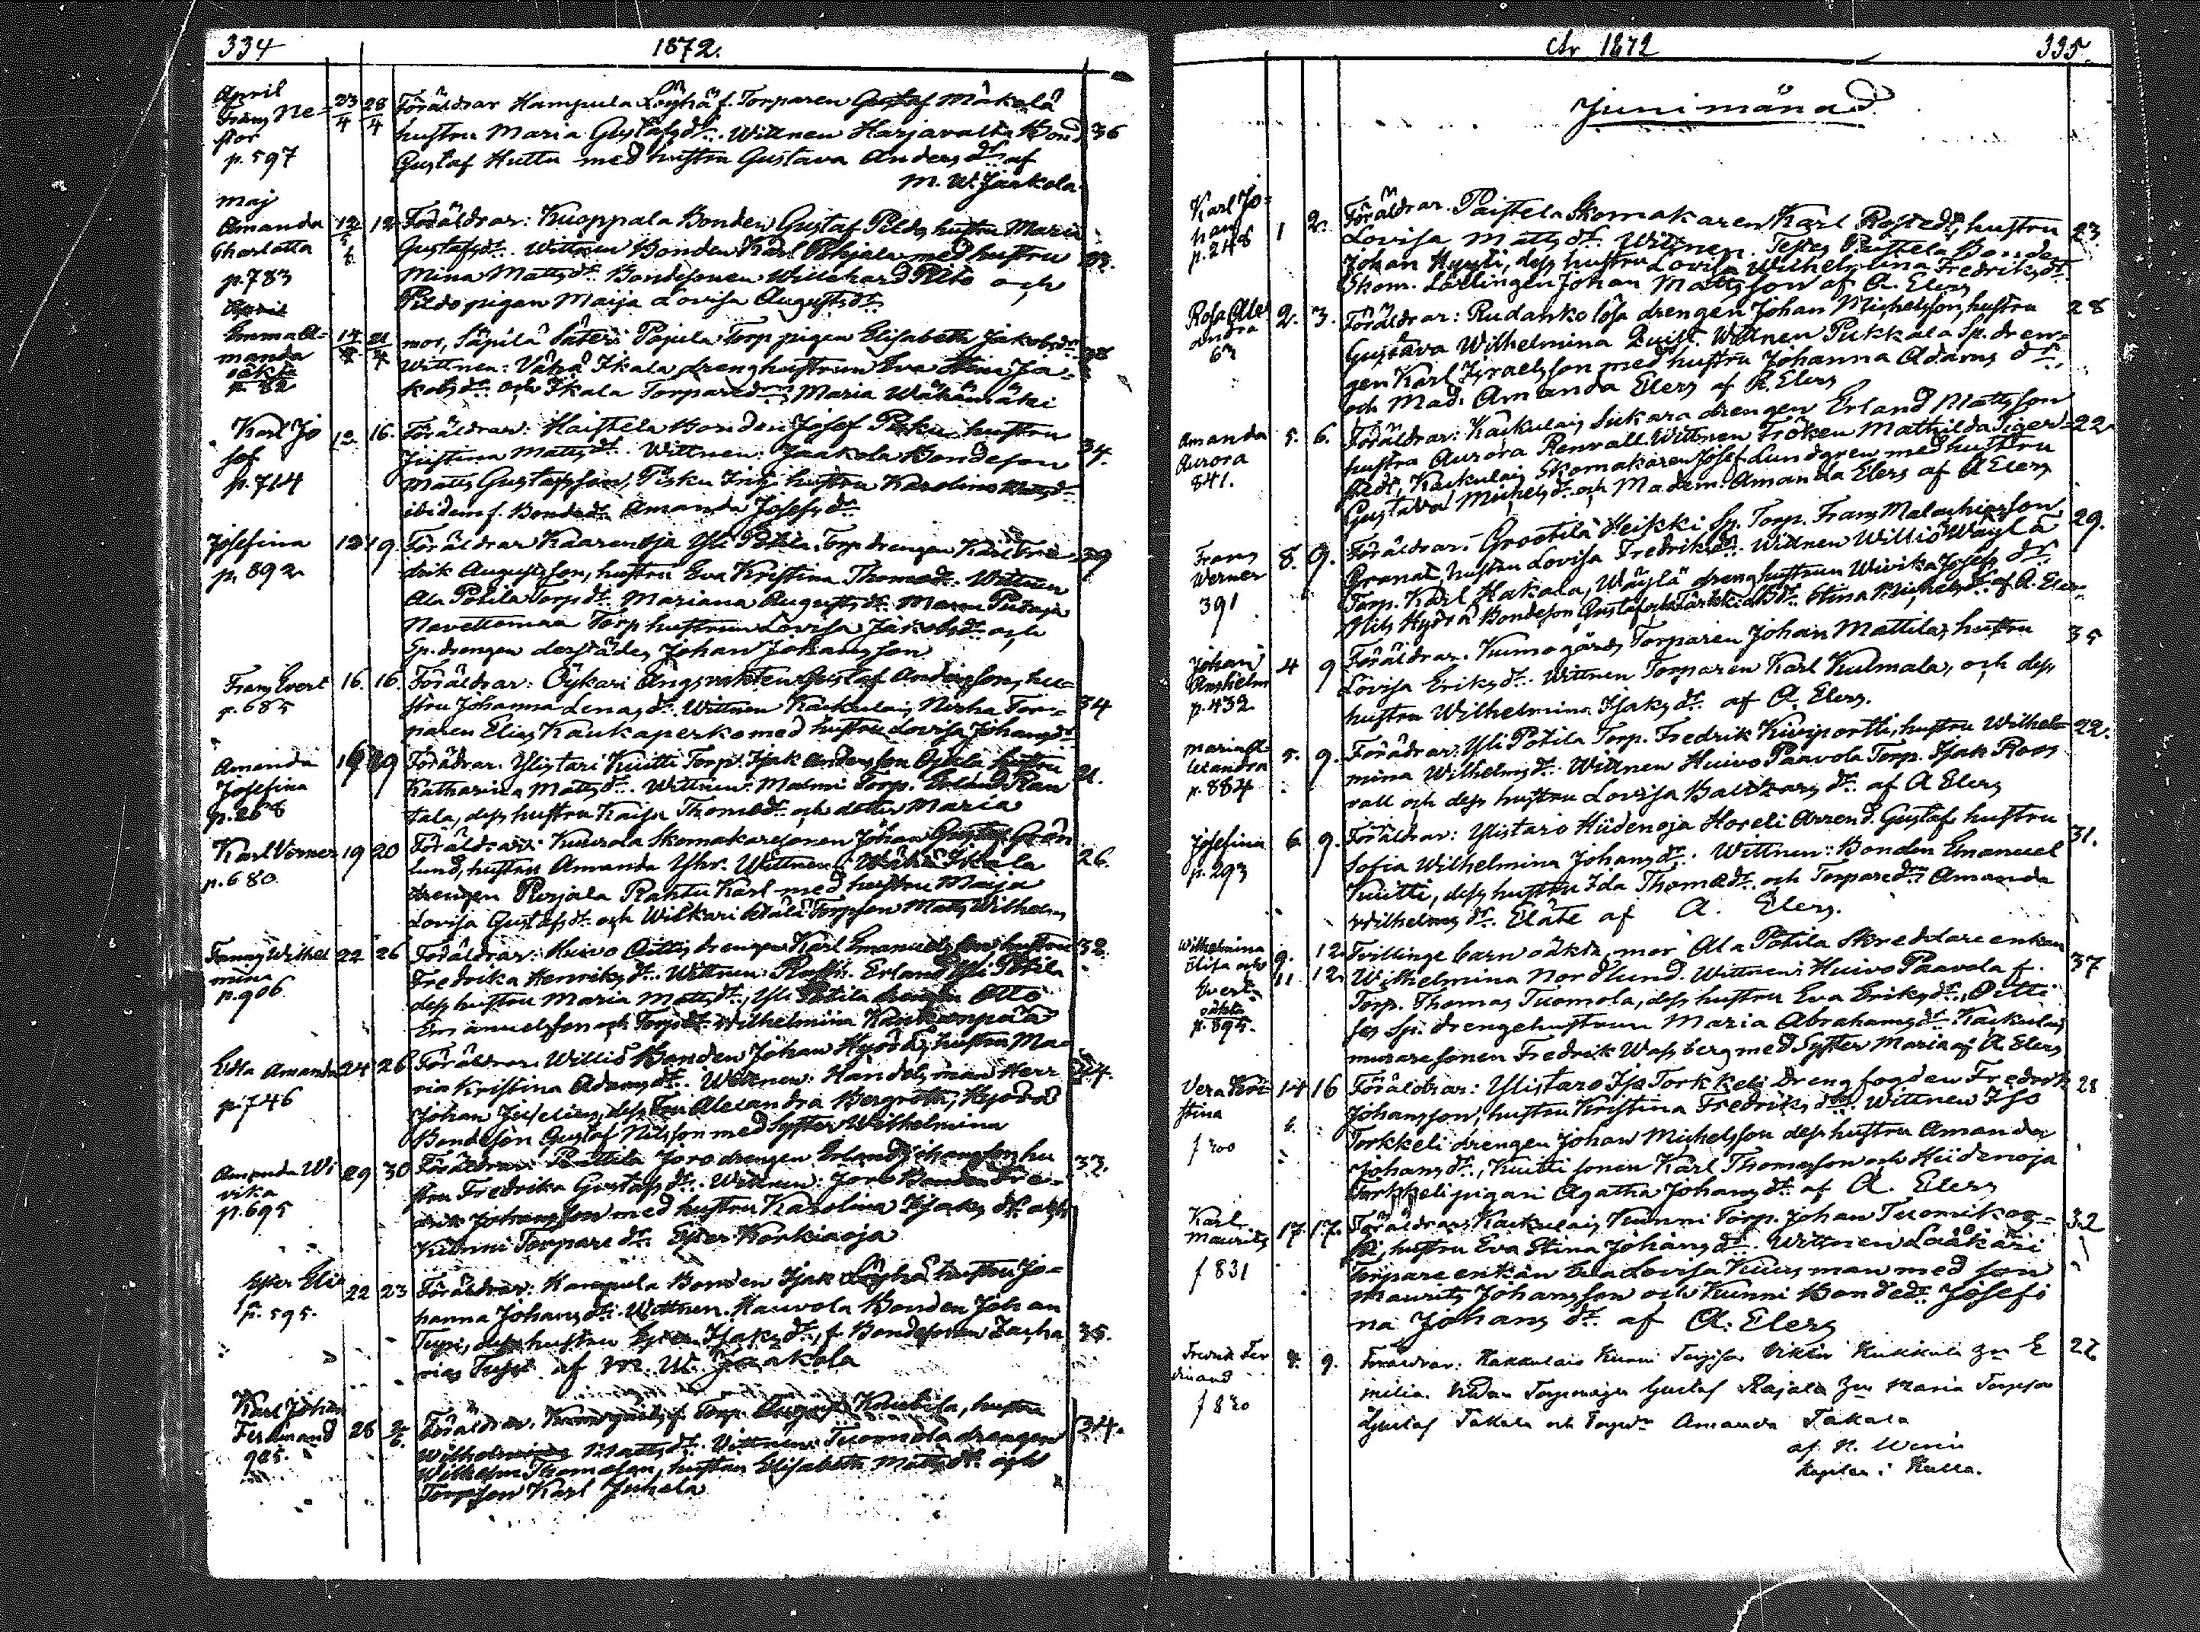 334
1872.
April
Frans Ne=
stor
p. 597
23/4 28/4
Föräldrar Hampula Löyhä f. Torparen Gustaf Mäkelä
hustru Maria Gustafsdr. Wittnen Harjavalta Bond. 36
Gustaf Huttu med hustru Gustava Andersdr af
M. W. Jaakola
Maj
Amanda
Charlotta
p. 783
12 12
Föräldrar: Kuoppala Bonden Gustaf Pildo, hustru Maria
Gustafsdr. Wittnen Bonden Karl Pohjala med hustru
Mina Mattsdr. Bondesonen Willehard och
Pildo pigan Maija Lovisa Augustsdr
April
Emma A=
manda
oäkta
p. 82
14/4 21/4
mor, Säpilä Säteri Papula Torp pigan Elisabeth Jakobsdr 38
Wittnen: Vähä Ikala drenghustrun Eva Stina Ja=
kobsdr och Ikala Torparedr Maria Wähämäki
Karl Jo
sef
p. 714
12. 16.
Föräldrar: Haistela Bonden Josef Pisku hustru
Justina Mattsdr. Wittnen: Jaakola Bondeson 34.
Matts Gustafsson, Pisku Inh. hustru Karolina Mattsdr
ibidem f. Bondedr. Amanda Josefsdr
Josefina
p. 892
12 19
Föräldrar Kaarenoja Yli Potila Torp drengen Karl Fre= 39
drik Augustsson, hustru Eva Kristina Thomasdr. Wittnen
Ala Potila Torpdr. Mariana Augustsdr.
Navettomaa Torphustrun Lovisa Jakobsdr och
Sp. drengen derstädes Johan Johansson
Frans Evert
p. 685
16. 16.
Föräldrar: Öykäri Ängsvakten Gustaf Andersson, hu=
stru Johanna Lenasdr. Wittnen Kaukulais Nirha Tor= 34
paren Elias Kaukaperko med hustru Lovisa Johansdr
Amanda
Josefina
p. 268
16 29
Föräldrar. Ylistari Kuitti Torp. Isak Andersson Ojala hustru
Katharina Mattsdr. Wittnen: Malmi Torp. Erland Ran 21.
tala, dess hustru Kaisa Thomasdr och dotter Maria
Karl Verner
p. 680.
19 20
Föräldrar: Kuurola Skomakaresonen Johan Gustaf Grön
lund, hustru Amanda Yhr. Wittnen: Wähä Ikala 26.
drengen Pirjala Rahtu Karl med hustru Maija
Lovisa Gustafsdr. och Wilkari Torpson Matts Wilhelms
Fanny Wilhel
mina
p. 906
22 26
Föräldrar: Huivo Oittis drengen Karl Emanuelsson hustru 32.
Fredrika Henriksdr. Wittnen: Erland Yli Potila
dess hustru Maria Mattsdr., Yli Potila drengen Otto
Emanuelsson och Torpdr. Wilhelmina Kaukaanpää
Edla Amanda
p. 746
24 26
Föräldrar: Willio Bonden Johan Hyödö, hustru Ma 24.
ria Kristina Adamsdr. Wittnen: Handelsman Herr
Johan Juselius, dess Fru Alexandra Bergroth, Hyödö
Bondeson Gustaf Nilsson med Syster Wilhelmina
Amanda Wi
vika
p. 695
29 30
Föräldrar: Pirttilä Joro drengen Erland Johansson, hu 32.
stru Fredrika Gustafsdr. Wittnen: Joro Bonden Fre=
drik Johansson med hustru Karolina Isaksdr. och
Kunni Torpare dr. Ester Korkiaoja
Ester Eli
sa
p. 595.
22 23
Föräldrar: Hampula Bonden Isak Löyhä hustru Jo=
hanna Johansdr. Wittnen. Hauvola Bonden Johan
Tupi, dess hustru Isaksdr, f. Bondesonen Zacha 35.
rias Tupi af M. W. Jaakola
Karl Johan
Ferdinand
905.
28 2/6.
Föräldrar. f. Torp. Koubila, hustru 34.
Mattsdr. Wittnen: Tuomola drengen
Wilhelm Thomasson, hustru Elisabeth Mattsdr och
Torpson Karl Juhela
År 1872
335.
Juni månad
Karl Jo=
han
p. 248
1 2.
Föräldrar. Paistela Skomakaren Karl Rostedt, hustru 23
Lovisa Mattsdr. Wittnen. Paistela Bonden
Johan Hyvsti, dess hustru Lovisa Wilhelmina Fredriksdr.
Skom. Lärlingen Johan Mattsson af A. Elers
Rosa Alex
andra
63
2. 3.
Föräldrar: Rudanko lösa drengen Johan Michelsson, hustru 28
Gustava Wilhelmina Quist. Wittnen Pukkala Sp. dren=
gen Karl Israelsson med hustru Johanna Adams dr.
och Mad. Amanda Elers af A. Elers
Amanda
Aurora
841.
5. 6.
Föräldrar: Kaukulais Sukara drengen Erland Mattsson 22
hustru Aurora Renvall. Wittnen Fröken Mathilda Tiger=
stedt, Kaukulais Skomakaren Josef Lundgren med hustru
Gustava Michelsdr. och Madem. Amanda Elers af A Elers
Frans
Werner
391
8. 9.
Föräldrar. Grootila Heikki Sp. Torp. Frans Malachiasson 29.
Granat, hustru Lovisa Fredriksdr. Wittnen Willio Wäylä
Torp. Karl Hakala, Wäylä drenghustrun Wivika Josefs dr.
Nils Hyödö Bondeson Gustaf och Bdr. Stina Michelsdr. af A. Elers
Johan
Anshelm
p. 432
4 9
Föräldrar. Kumogårds Torparen Johan Mattila, hustru 35
Lovisa Eriksdr. Wittnen Torparen Karl Kulmala, och dess
hustru Wilhelmina Isaksdr. af A. Elers.
Maria Al
exandra
p. 884
5. 9.
Föräldrar: Yli Potila Torp. Fredrik Kiviportti, hustru Wilhel= 22.
mina Wilhelmsdr. Wittnen Huivo Paavola Torp. Isak Roos
vall och dess hustru Lovisa Baltzars dr. af A Elers
Josefina
p. 293
6. 9.
Föräldrar: Ylistaro Hiidenoja Horeli Arrend. Gustaf, hustru 31.
Sofia Wilhelmina Johansdr. Wittnen: Bonden Emanuel
Kuitti, dess hustru Ida Thomasdr. och Torparedr. Amanda
Wilhelms dr. Eläte af A. Elers.
Wilhelmina
Elisa och
Evert
oäkta
p. 895.
9. 12.
11 12.
Tvillinge barn oäkta, mor Ala Potila Skreddare enkan
Wilhelmina Nordlund. Wittnen: Huivo Paavola f. 37
Torp. Thomas Tuomola, dess hustru Eva Eriksdr., Oitti
ses Sp. drengehustrun Maria Abrahamsdr. Kaukulais
muraresonen Fredrik Wassberg med Syster Maria af A Elers
Vera Kri
stina
f 200
14 16
Föräldrar: Ylistaro Iso Torkkeli Drengfogden Fredrik 28
Johansson, hustru Kristina Fredriks dr. Wittnen Iso
Torkkeli drengen Johan Michelsson dess hustru Amanda
Johansdr., Kuitti sonen Karl Thomasson och Hiidenoja
Torkkeli pigan Agatha Johansdr. af A. Elers
Karl
Maurits
f 831
17. 17.
Föräldrar: Kaukulais Kunni Torp. Johan Tuomikos= 32
ki, hustru Eva Stina Johansdr. Wittnen Lääkäri
Torpare enkan Eva Lovisa Kuusman med son
Maurits Johansson och Kunni Bondedr. Josefi
na Johans dr. af A. Elers
Fredrik Fer
dinand
f 820
8. 9.
Föräldrar: Kakkulais Kunni Viktor Kukkula E 27
milia. Gustaf Rajala Maria
Gustaf Takala och Amanda Takala
af
Kaplan i Kulla.